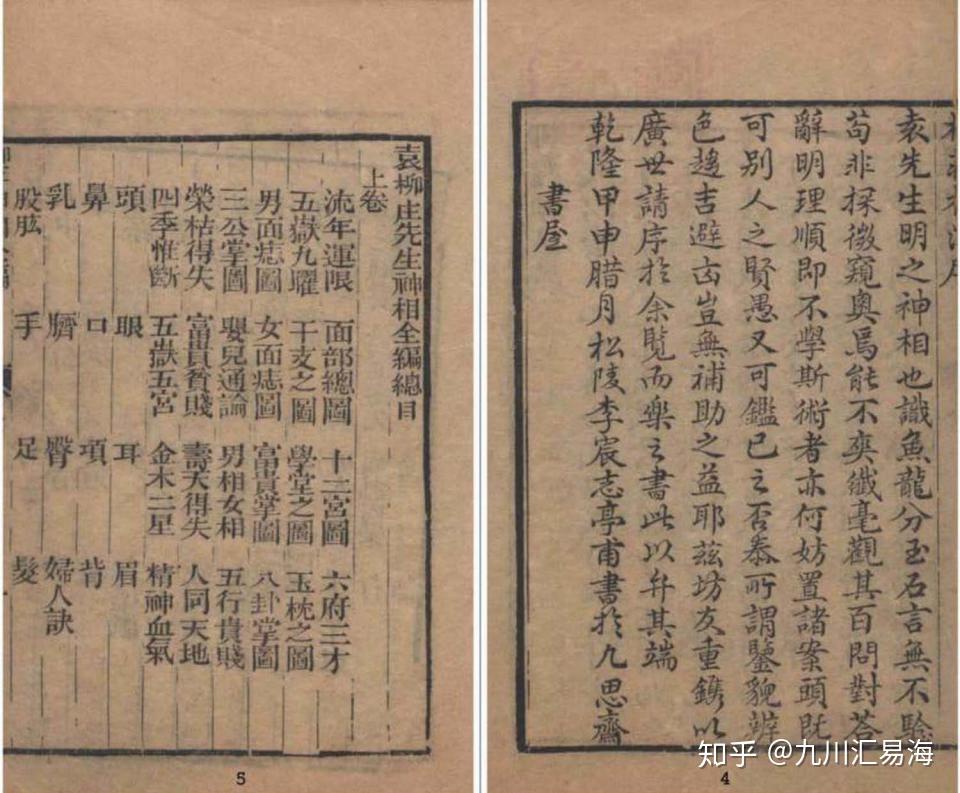 袁先生明之神相也識魚龍分玉石言無不驗
苟非探微窺奧焉能不爽纖毫觀其百問對荅
辭明理順即不學斯術者亦何妨置諸案頭既
可別人之賢愚又可鑑已之否泰所謂鑒貌辨
色趨吉避凶豈無補助之益耶茲坊友重鐫以
廣世請序於余覧而樂之書此以弁其端
乾隆甲申腊月松陵李宸志亭甫書於九思齋
書屋
4
袁柳庄先生神相全編總目
上卷
流年運限 面部總圖 十二宮圖 六府三才
五嶽九曜 干支之圖 學堂之圖 玉枕之圖
男面痣圖 女面痣圖 富貴掌圖 八卦掌圖
三公掌圖 嬰兒通論 男相女相 五行貴賤
榮枯得失 富貴貧賤 壽夭得失 人同天地
四季惟斷 五嶽五宮 金木二星 精神血氣
頭 眼 耳 眉
鼻 口 項 背
乳 臍 臀 婦人訣
股肱 手 足 髮
5
知乎 @九川汇易海